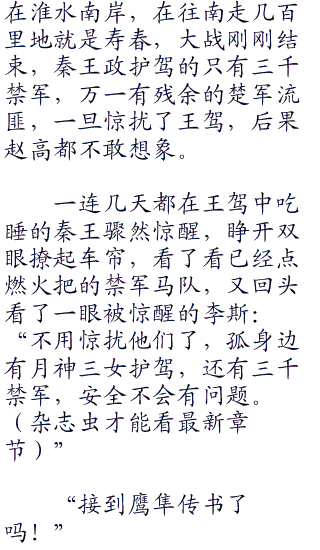 在淮水南岸，在往南走几百
里地就是寿春，大战刚刚结
束，秦王政护驾的只有三千
禁军，万一有残余的楚军流
匪，一旦惊扰了王驾，后果
赵高都不敢想象。
一连几天都在王驾中吃
睡的秦王骤然惊醒，睁开双
眼撩起车帘，看了看已经点
燃火把的禁军马队，又回头
看了一眼被惊醒的李斯：
“不用惊扰他们了，孤身边
有月神三女护驾，还有三千
禁军，安全不会有问题。
（杂志虫才能看最新章
节）”
“接到鹰隼传书了
吗！”